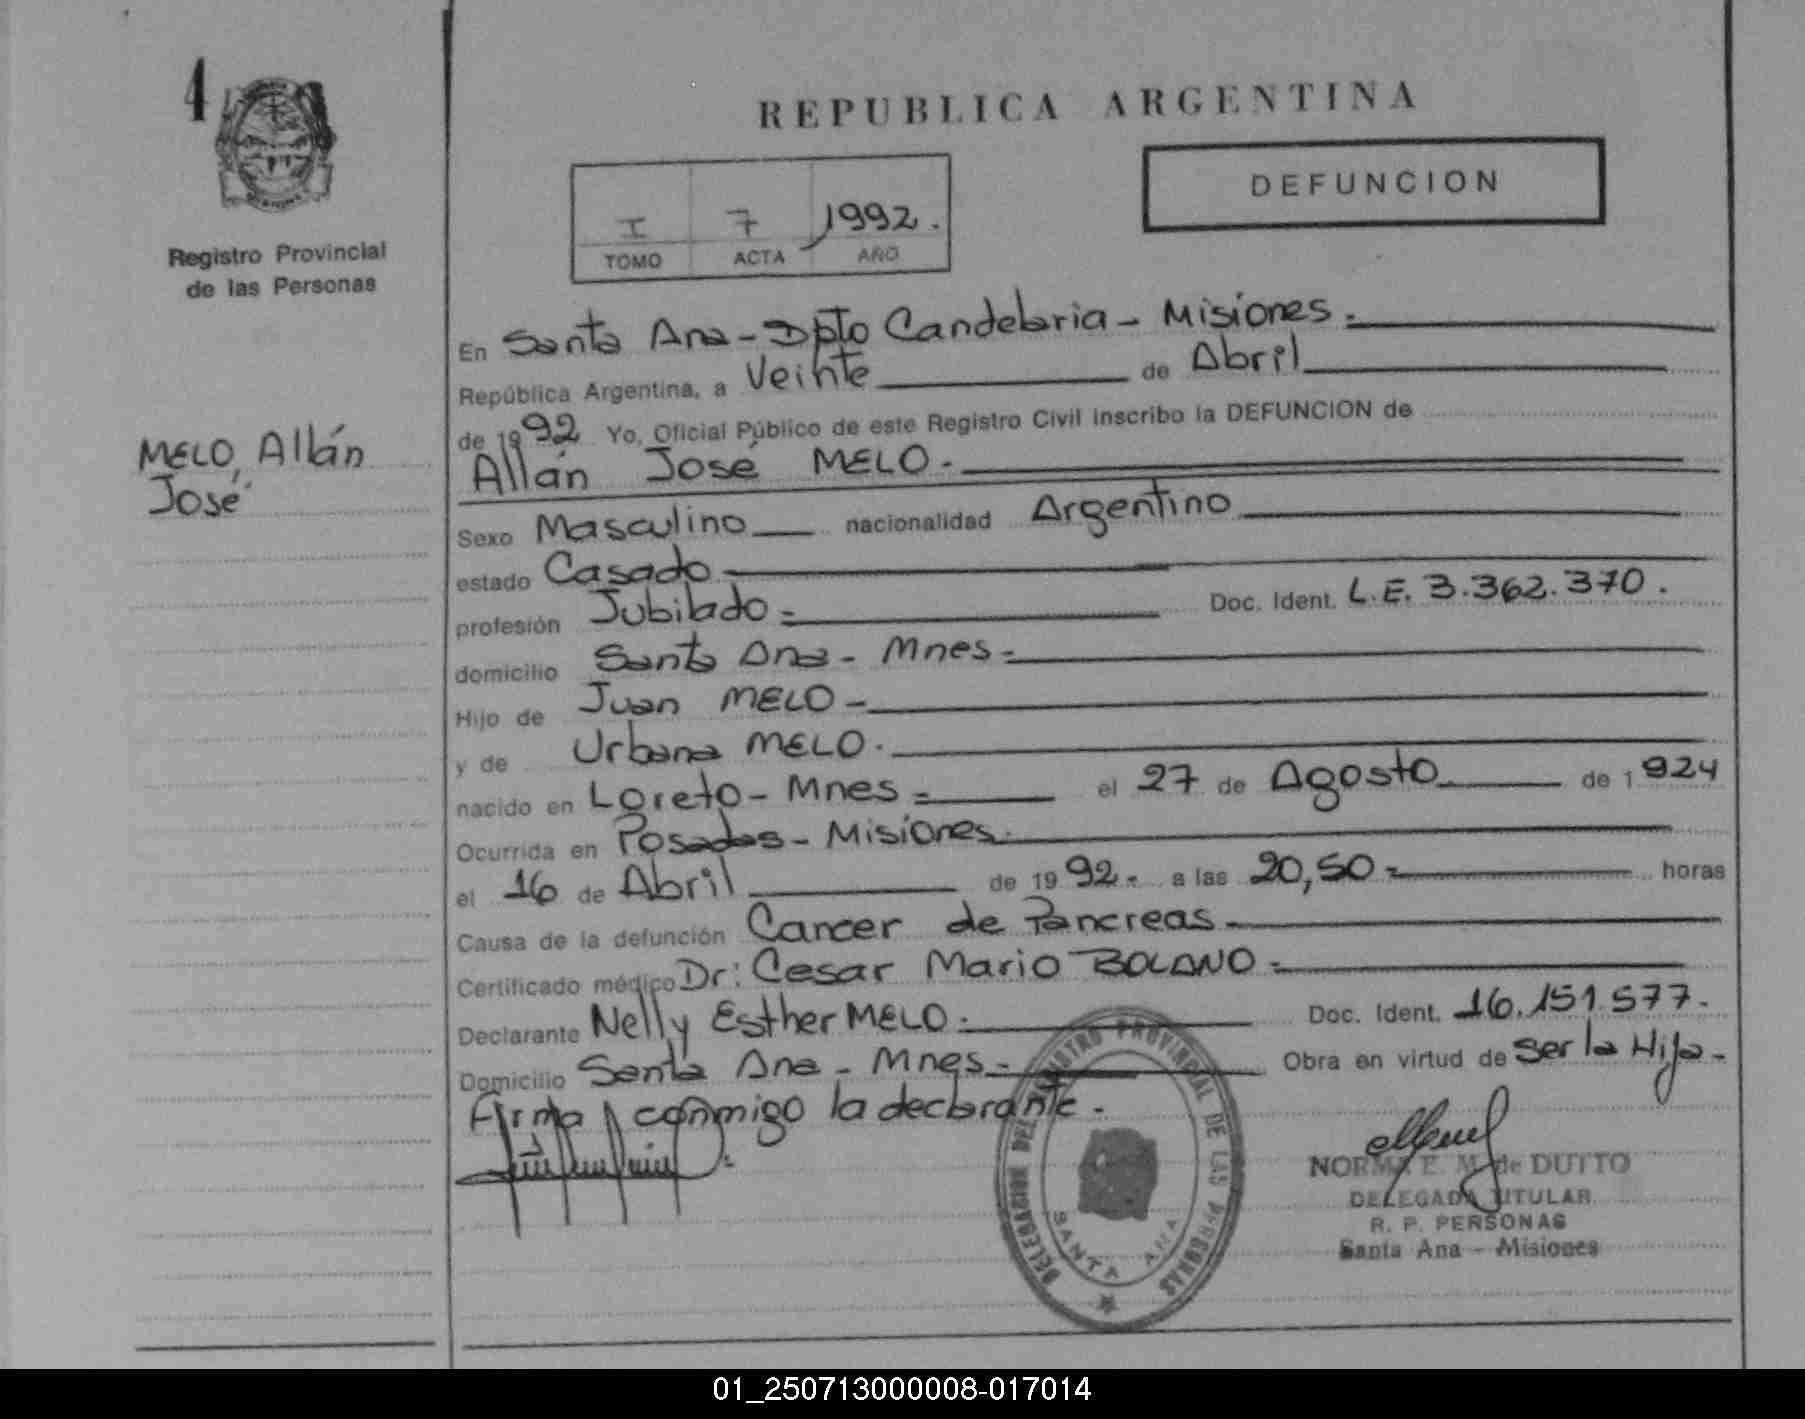 4
Registro Provincial
de las Personas
MELO, Allán
José
REPUBLICA ARGENTINA
DEFUNCION
I 7 1992.
TOMO ACTA AÑO
En Santa Ana - Dpto Candelaria - Misiones.
República Argentina, a Veinte de Abril
de 1992 Yo, Oficial Público de este Registro Civil inscribo la DEFUNCION de
Allán José MELO.
Sexo Masculino nacionalidad Argentino
estado Casado
profesión Jubilado Doc. Ident. L.E. 3.362.370.
domicilio Santa Ana - Mnes
Hijo de Juan MELO
y de Urbana MELO.
nacido en Loreto - Mnes el 27 de Agosto de 1924
Ocurrida en Posadas - Misiones
el 16 de Abril de 1992. a las 20,50 horas
Causa de la defunción Cancer de Pancreas
Certificado médico Dr: Cesar Mario BOLANO
Declarante Nelly Esther MELO. Doc. Ident. 16.151.577.
Domicilio Santa Ana - Mnes. Obra en virtud de ser la Hija
Firma conmigo la declarante.
DELEGACION DEL REGISTRO PROVINCIAL DE LAS PERSONAS
SANTA ANA
NORMA E. M. de DUTTO
DELEGADA TITULAR
R. P. PERSONAS
Santa Ana - Misiones
01_250713000008-017014